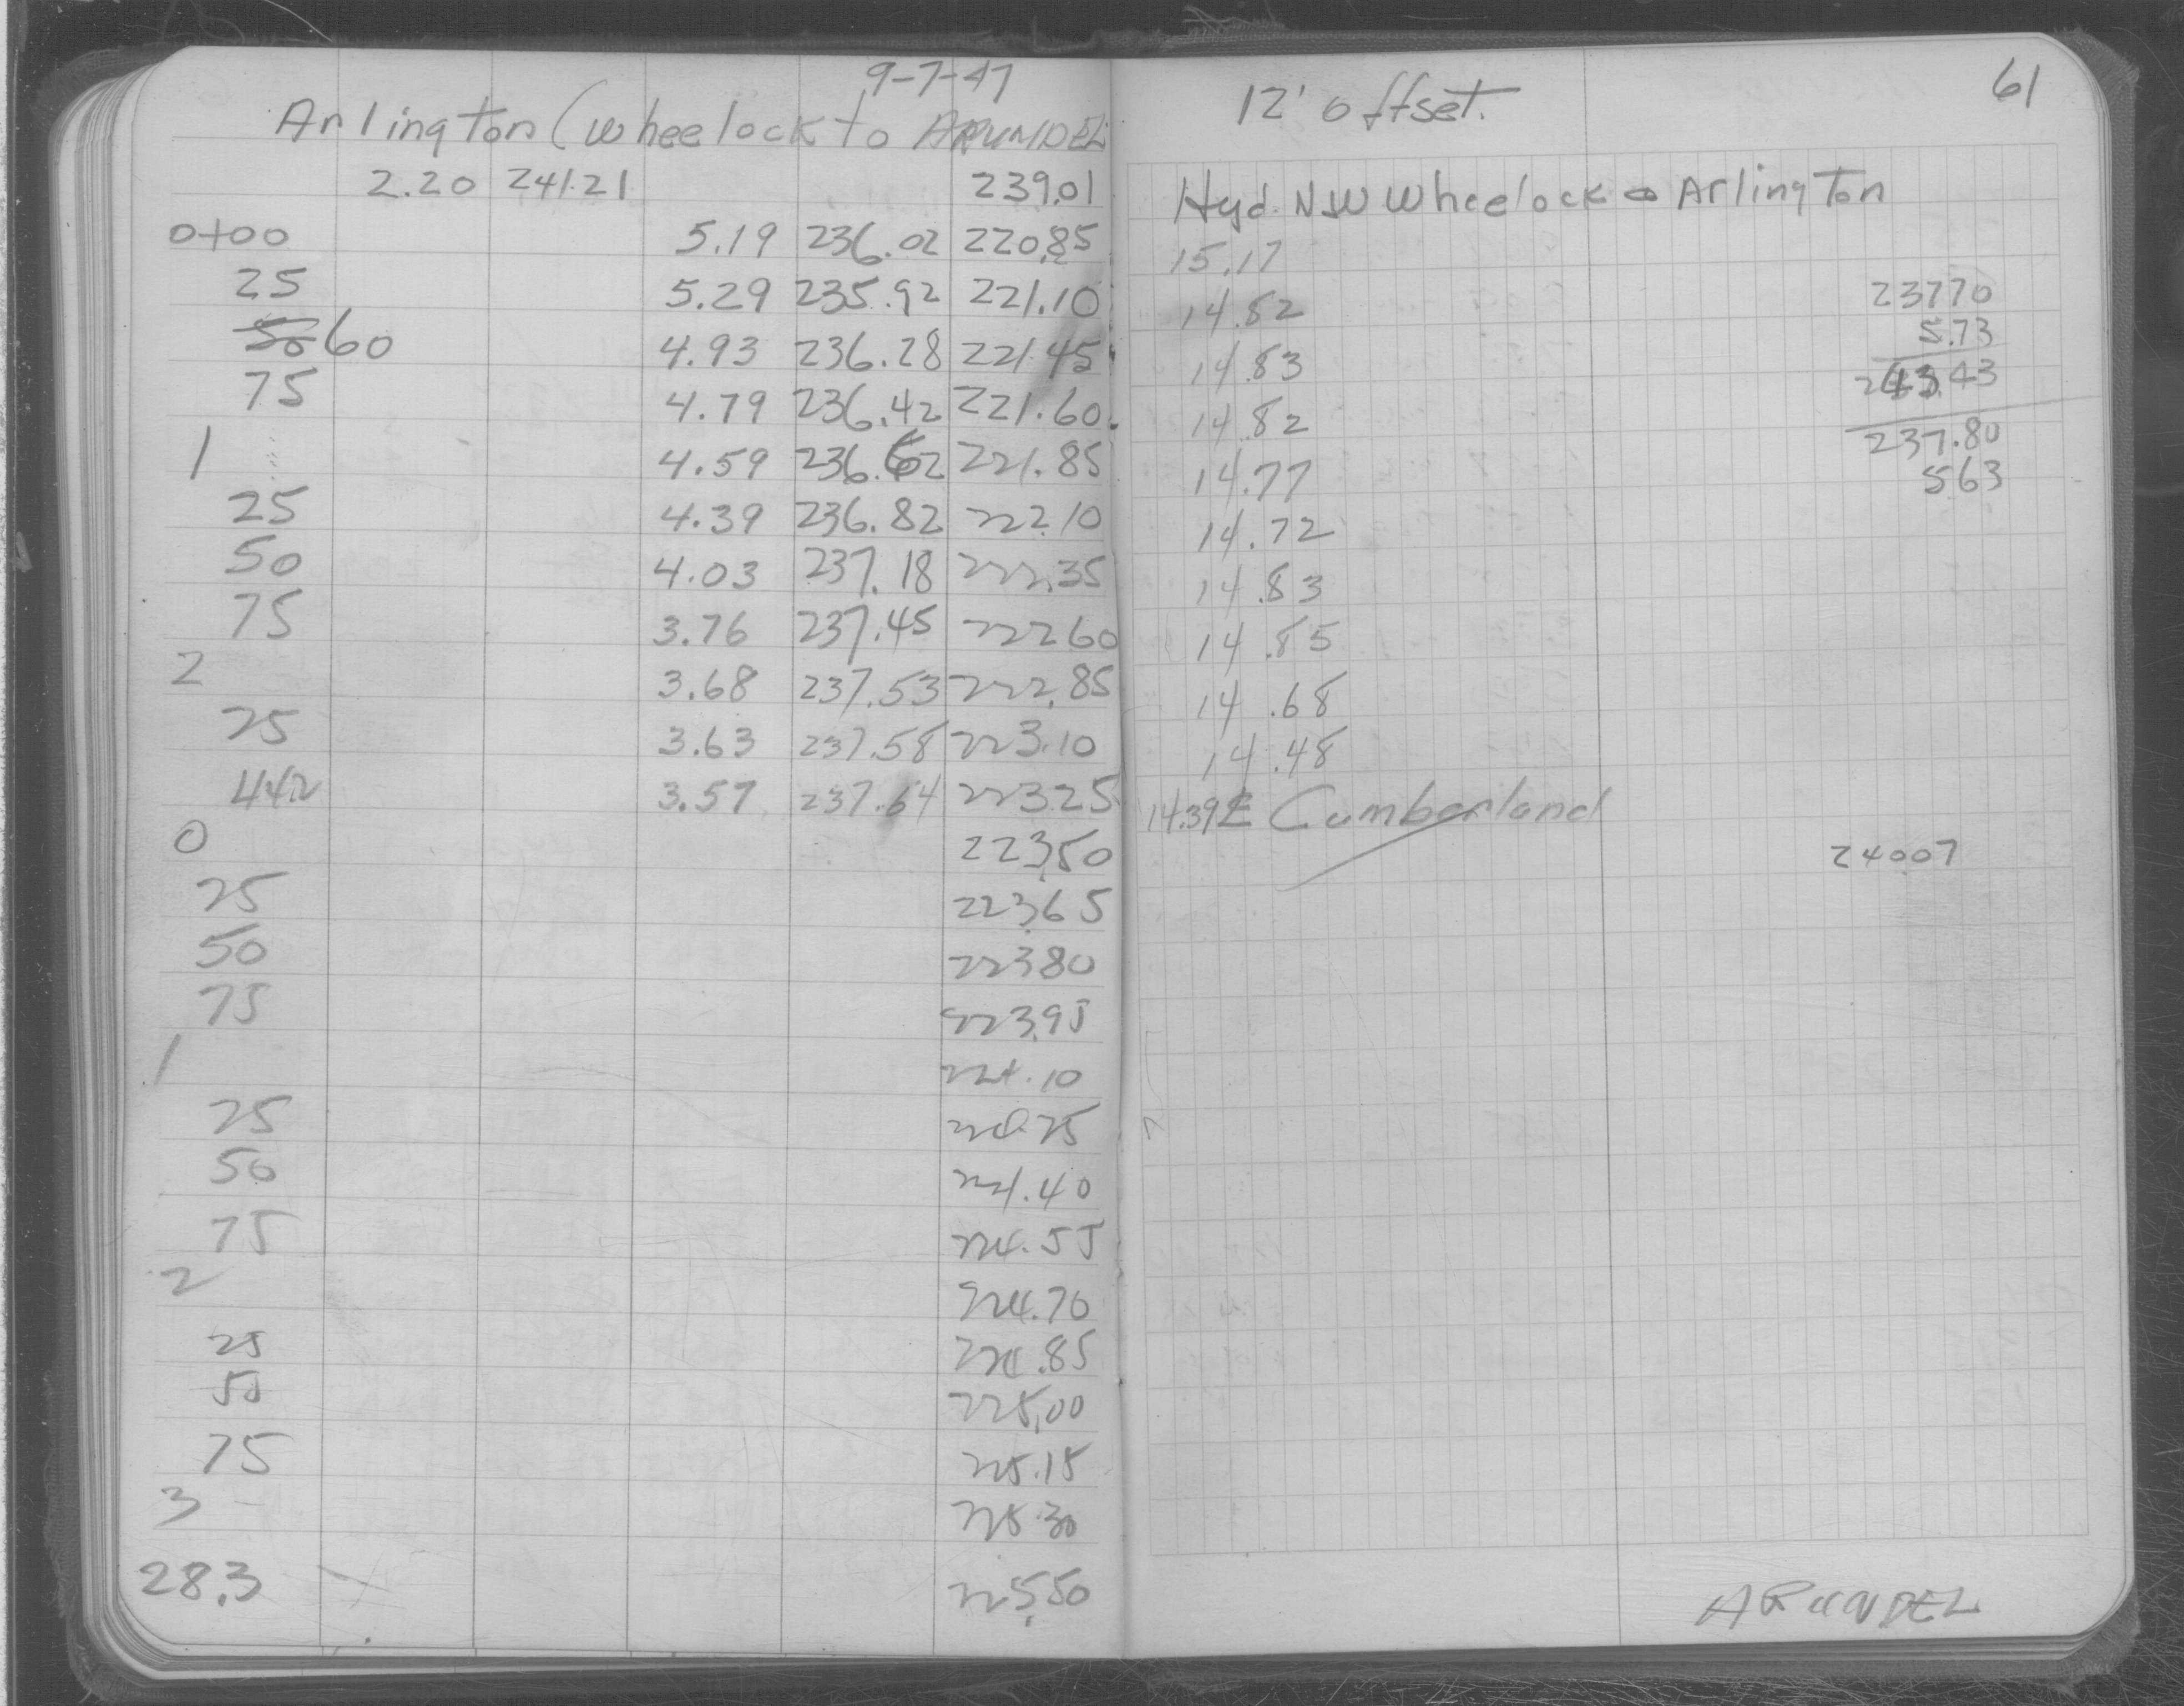 9-7-47
Arlington (Wheelock to ARUNDEL
2.20 241.21 239.01
0+00 5.19 236.02 220.85
25 5.29 235.92 221.10
50 60 4.93 236.28 221.45
75 4.79 236.42 221.60
1 4.59 236.62 221.85
25 4.39 236.82 222.10
50 4.03 237.18 222.35
75 3.76 237.45 222.60
2 3.68 237.53 222.85
25 3.63 237.58 223.10
44.2 3.57 237.64 223.25
0 223.50
25 223.65
50 223.80
75 223.95
1 224.10
25 224.25
50 224.40
75 224.55
2 224.70
25 224.85
50 225.00
75 225.15
3 225.30
28.3 225.50
61
12' offset.
Hyd. NW Wheelock & Arlington
15.17
14.82 23770
14.83 5.73
14.82 243.43
14.77 237.80
563
14.72
14.83
14.85
14.68
14.48
14.39 E Cumberland
24007
ARUNDEL